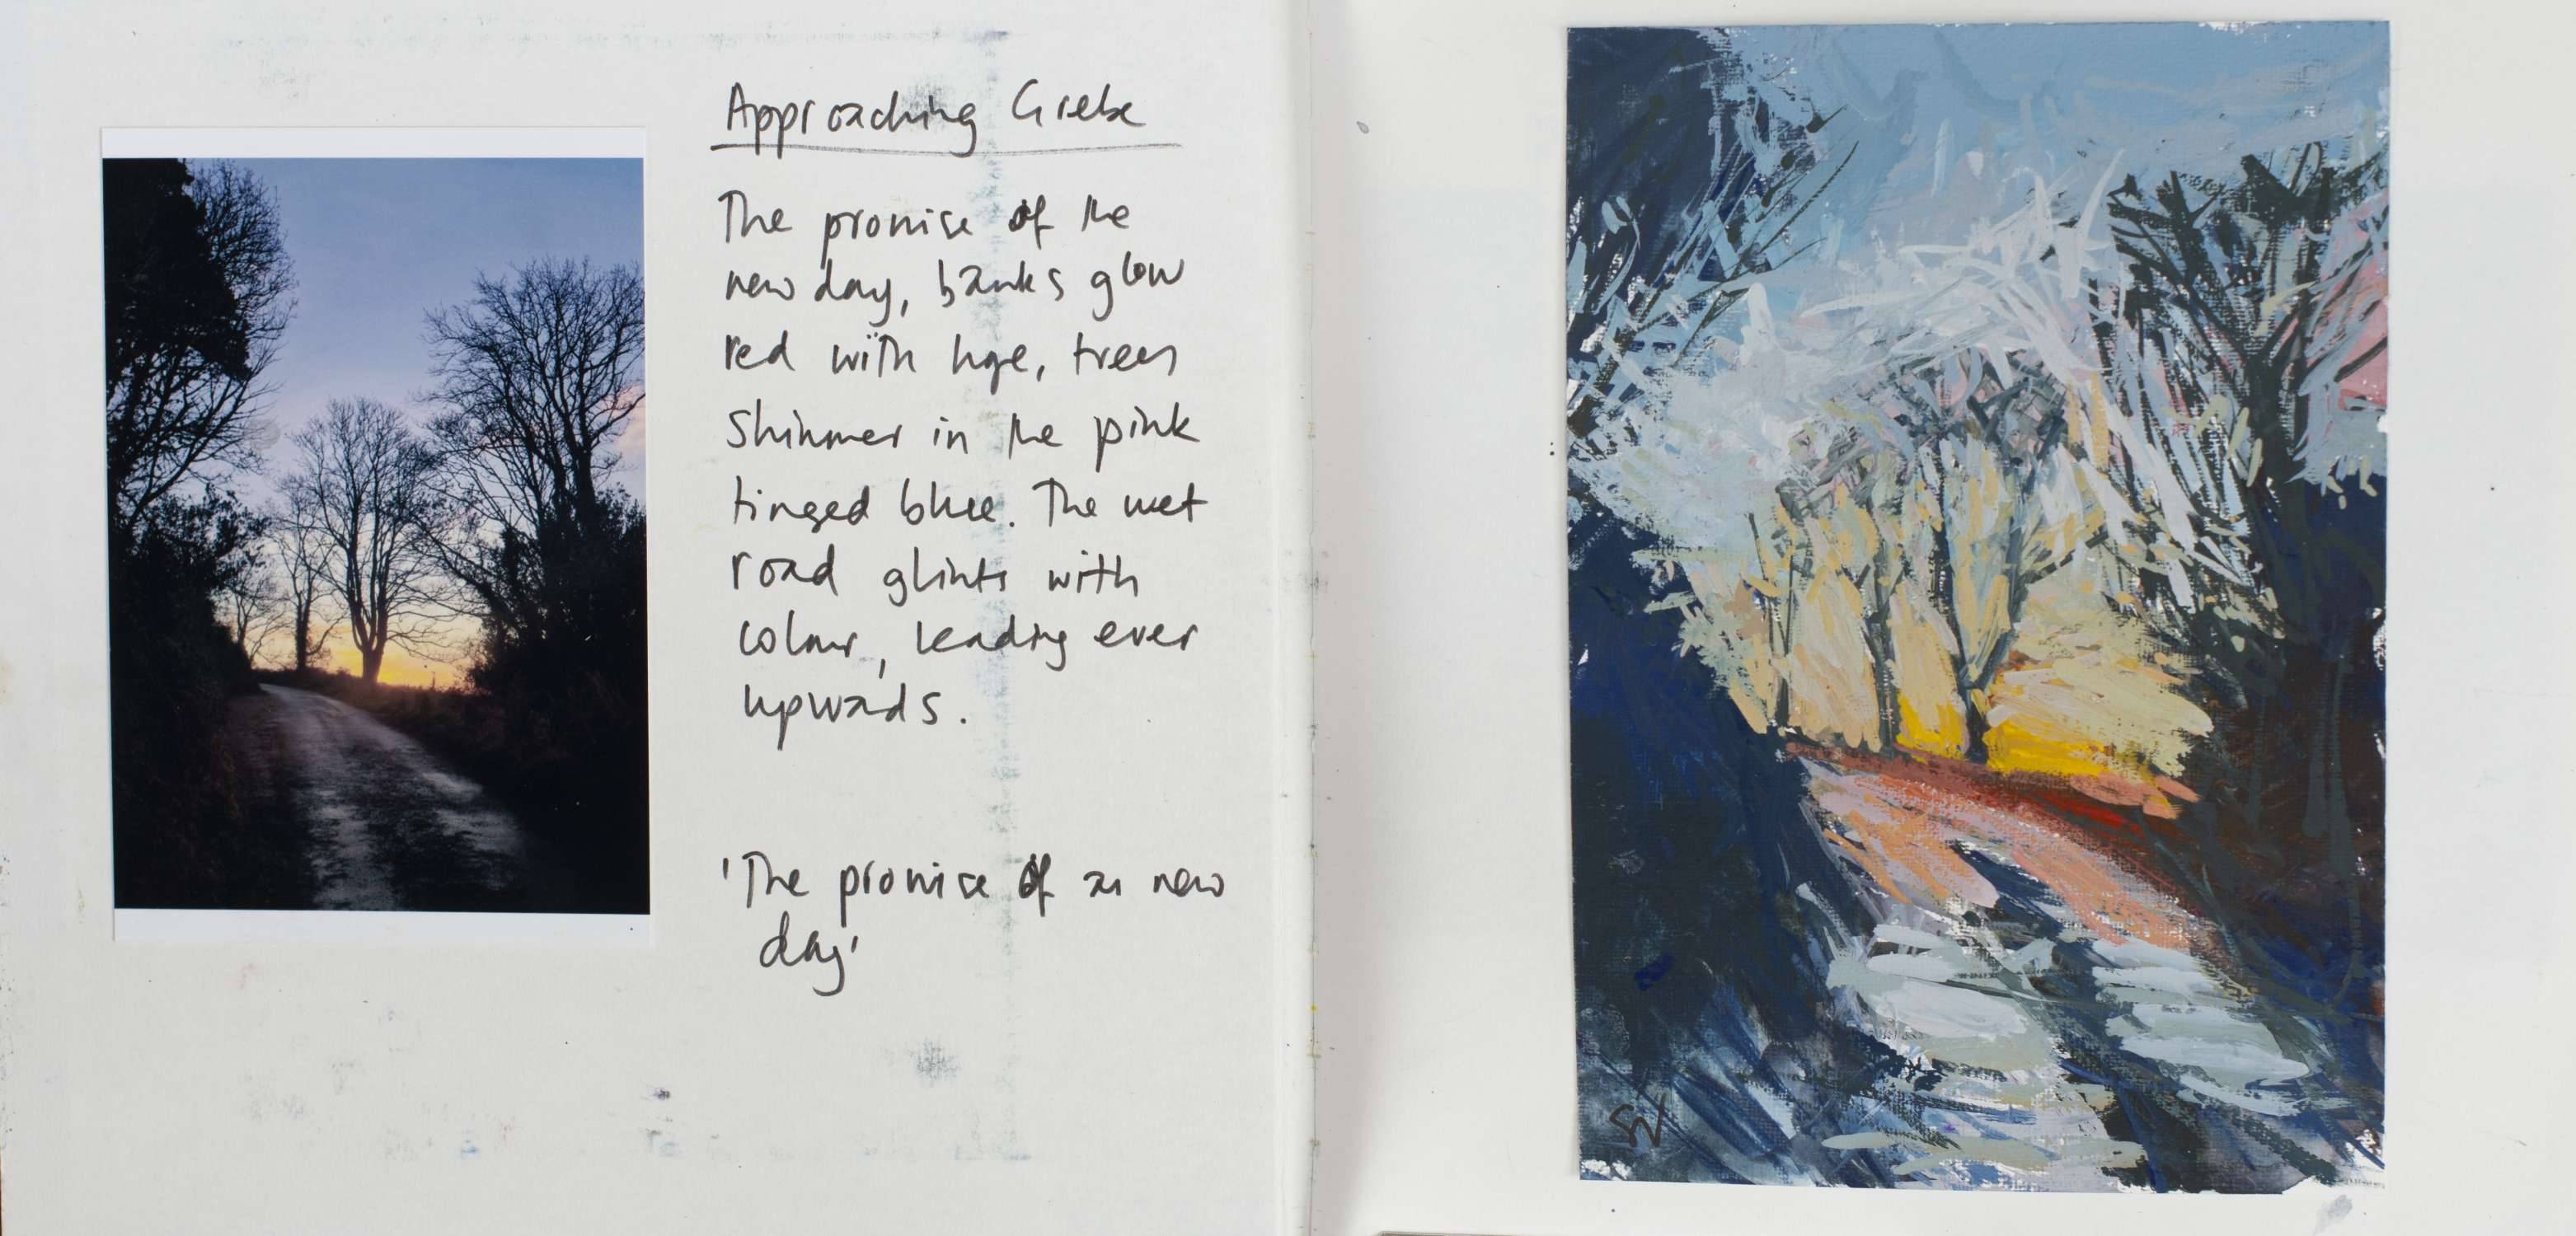 Approaching Grebe
The promise of the
new day, banks glow
red with hope, trees
shimmer in the pink
tinged blue. The wet
road glints with
colour, leading ever
upwards.
'The promise of a new
day'